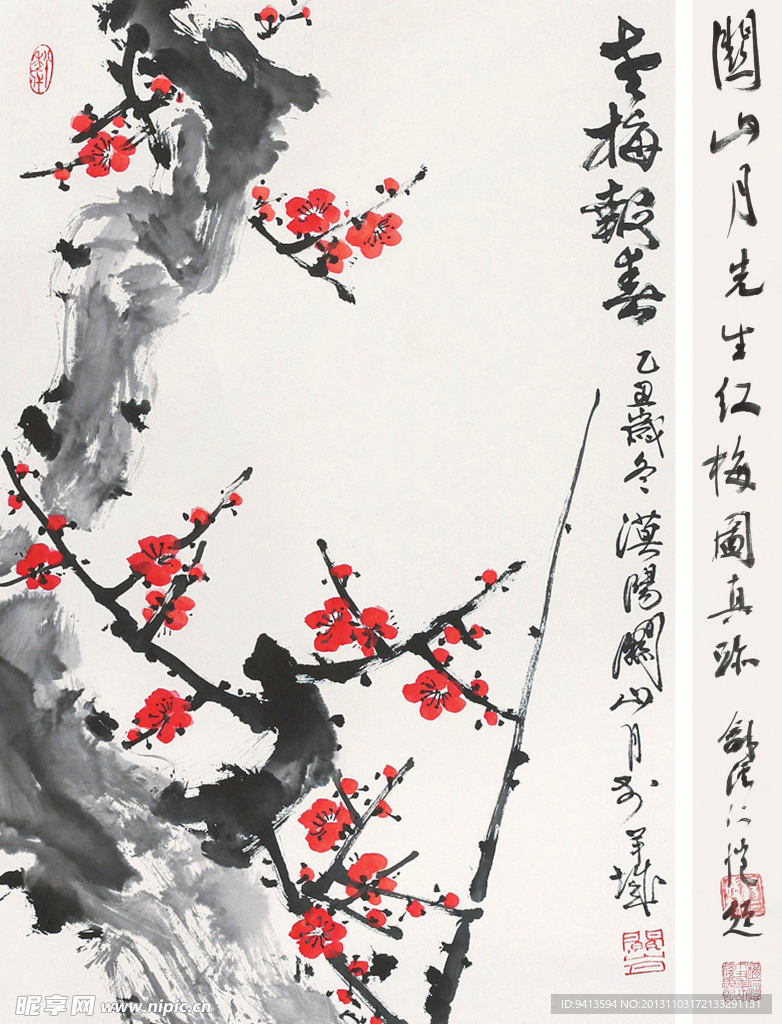 關山月先生红梅圖真跡 龢溪仁愷題
老梅報春
乙丑歲冬漠陽關山月於羊城
昵享网 www.nipic.cn
ID:9413594 NO:20131103172133291131